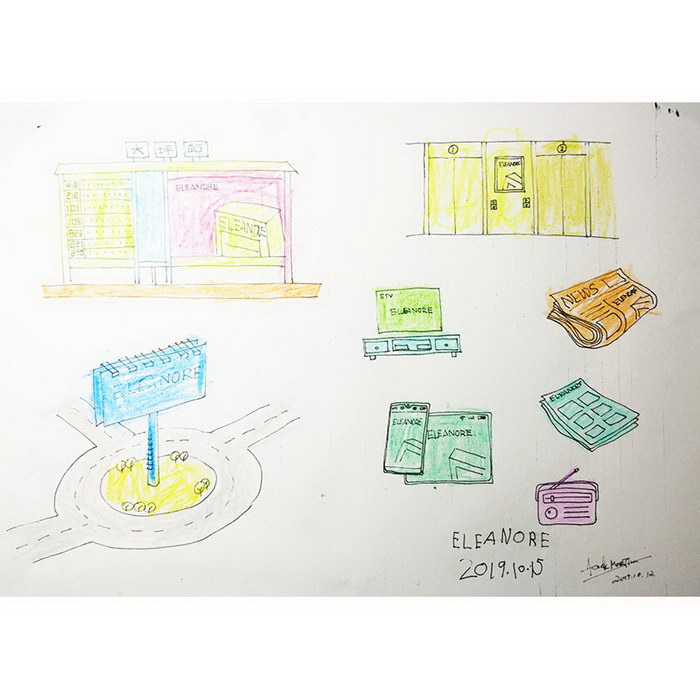 大 坪
ELEANORE
ELEANORE
① ②
ELEANORE
ETV
ELEANORE
NEWS
ELEANORE
ELEANORE
ELEANORE
ELEANORE
ELEANORE
2019.10.15
2019.10.12